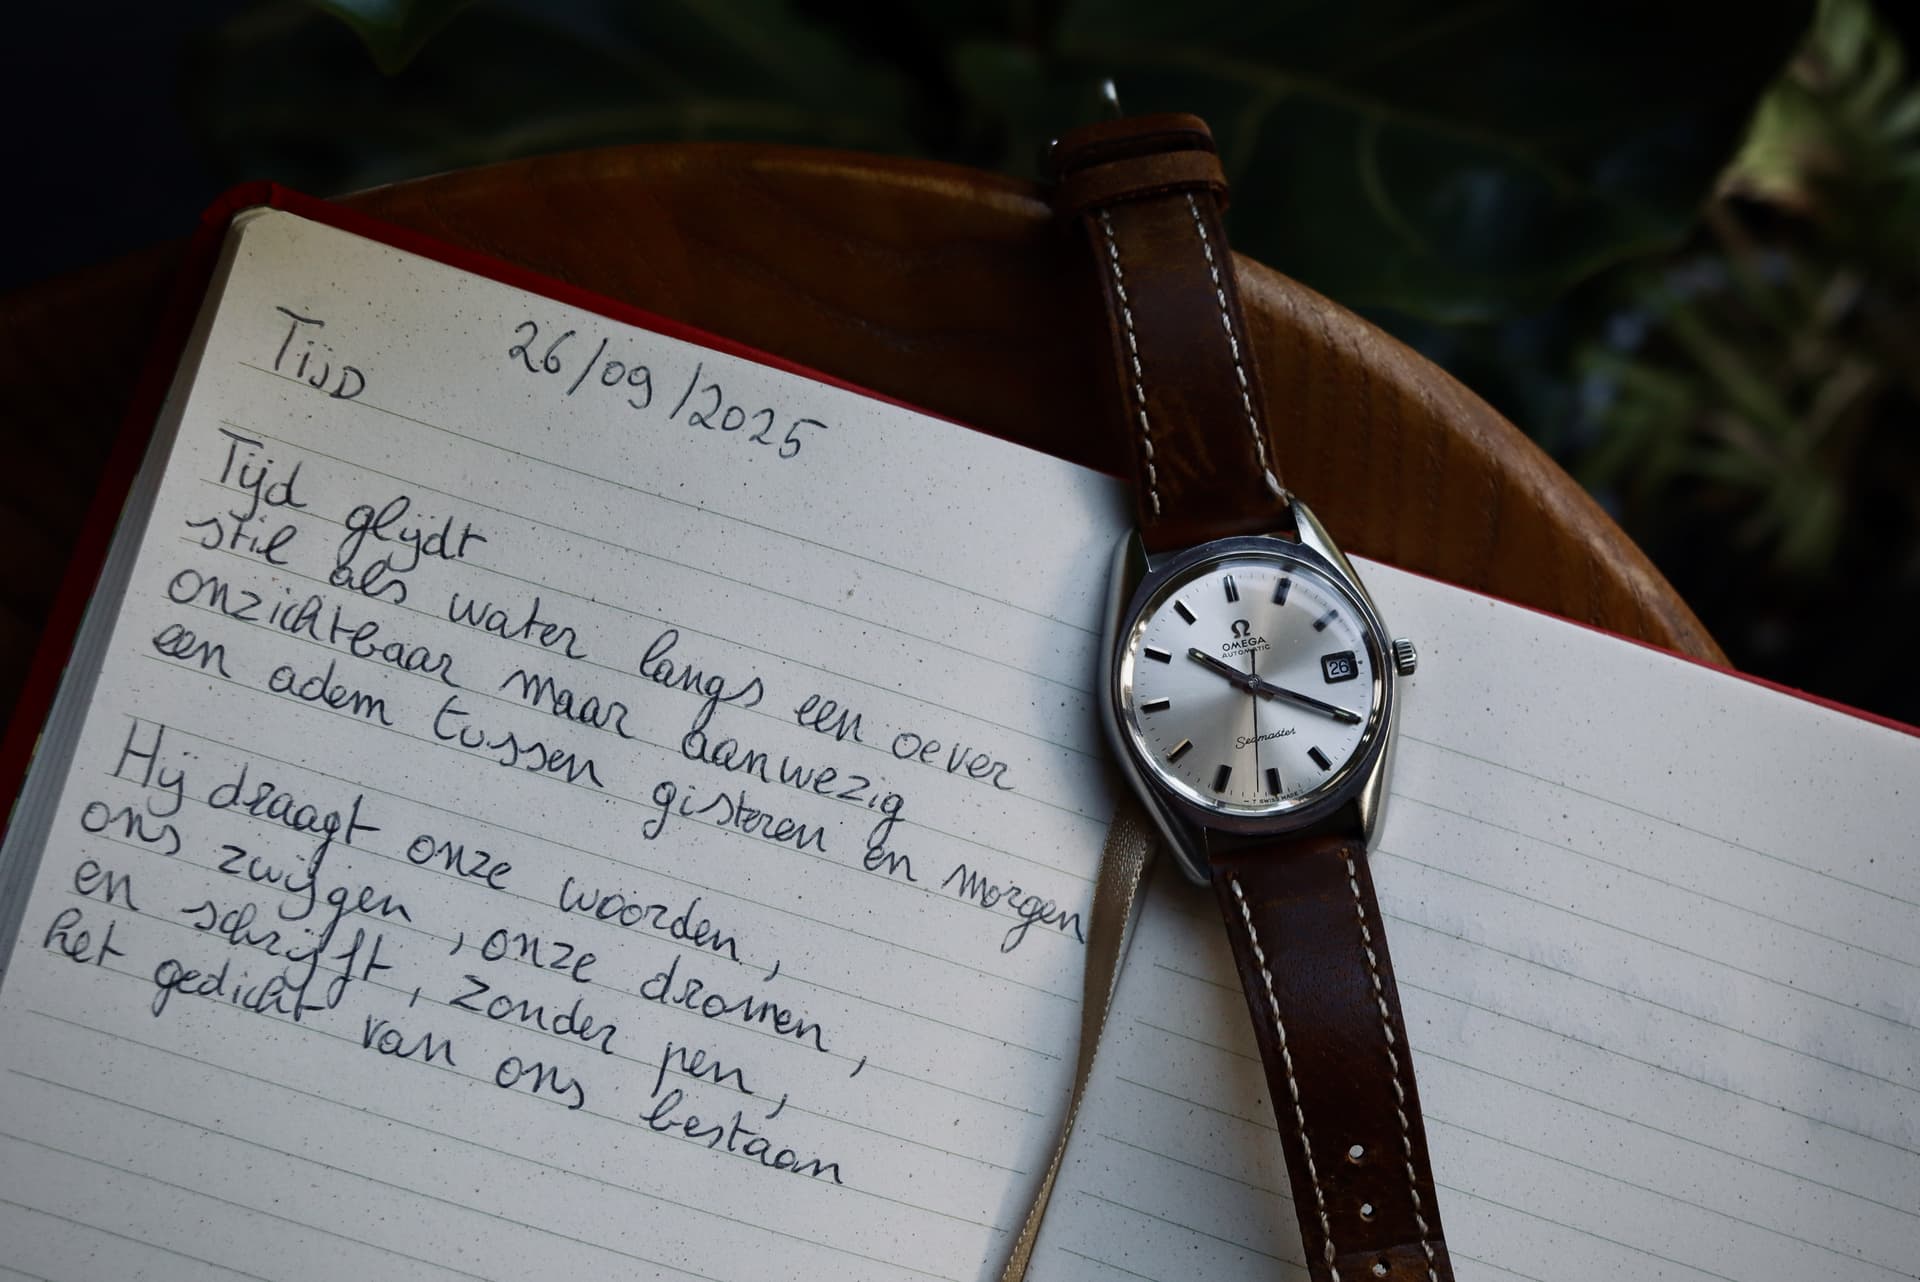 TIJD 26/09/2025
Tijd glijdt
stil als water langs een oever
onzichtbaar maar aanwezig
een adem tussen gisteren en morgen
Hij draagt onze woorden,
ons zwijgen, onze dromen,
en schrijft, zonder pen,
het gedicht van ons bestaan
Ω
OMEGA
AUTOMATIC
26
Seamaster
T SWISS MADE T